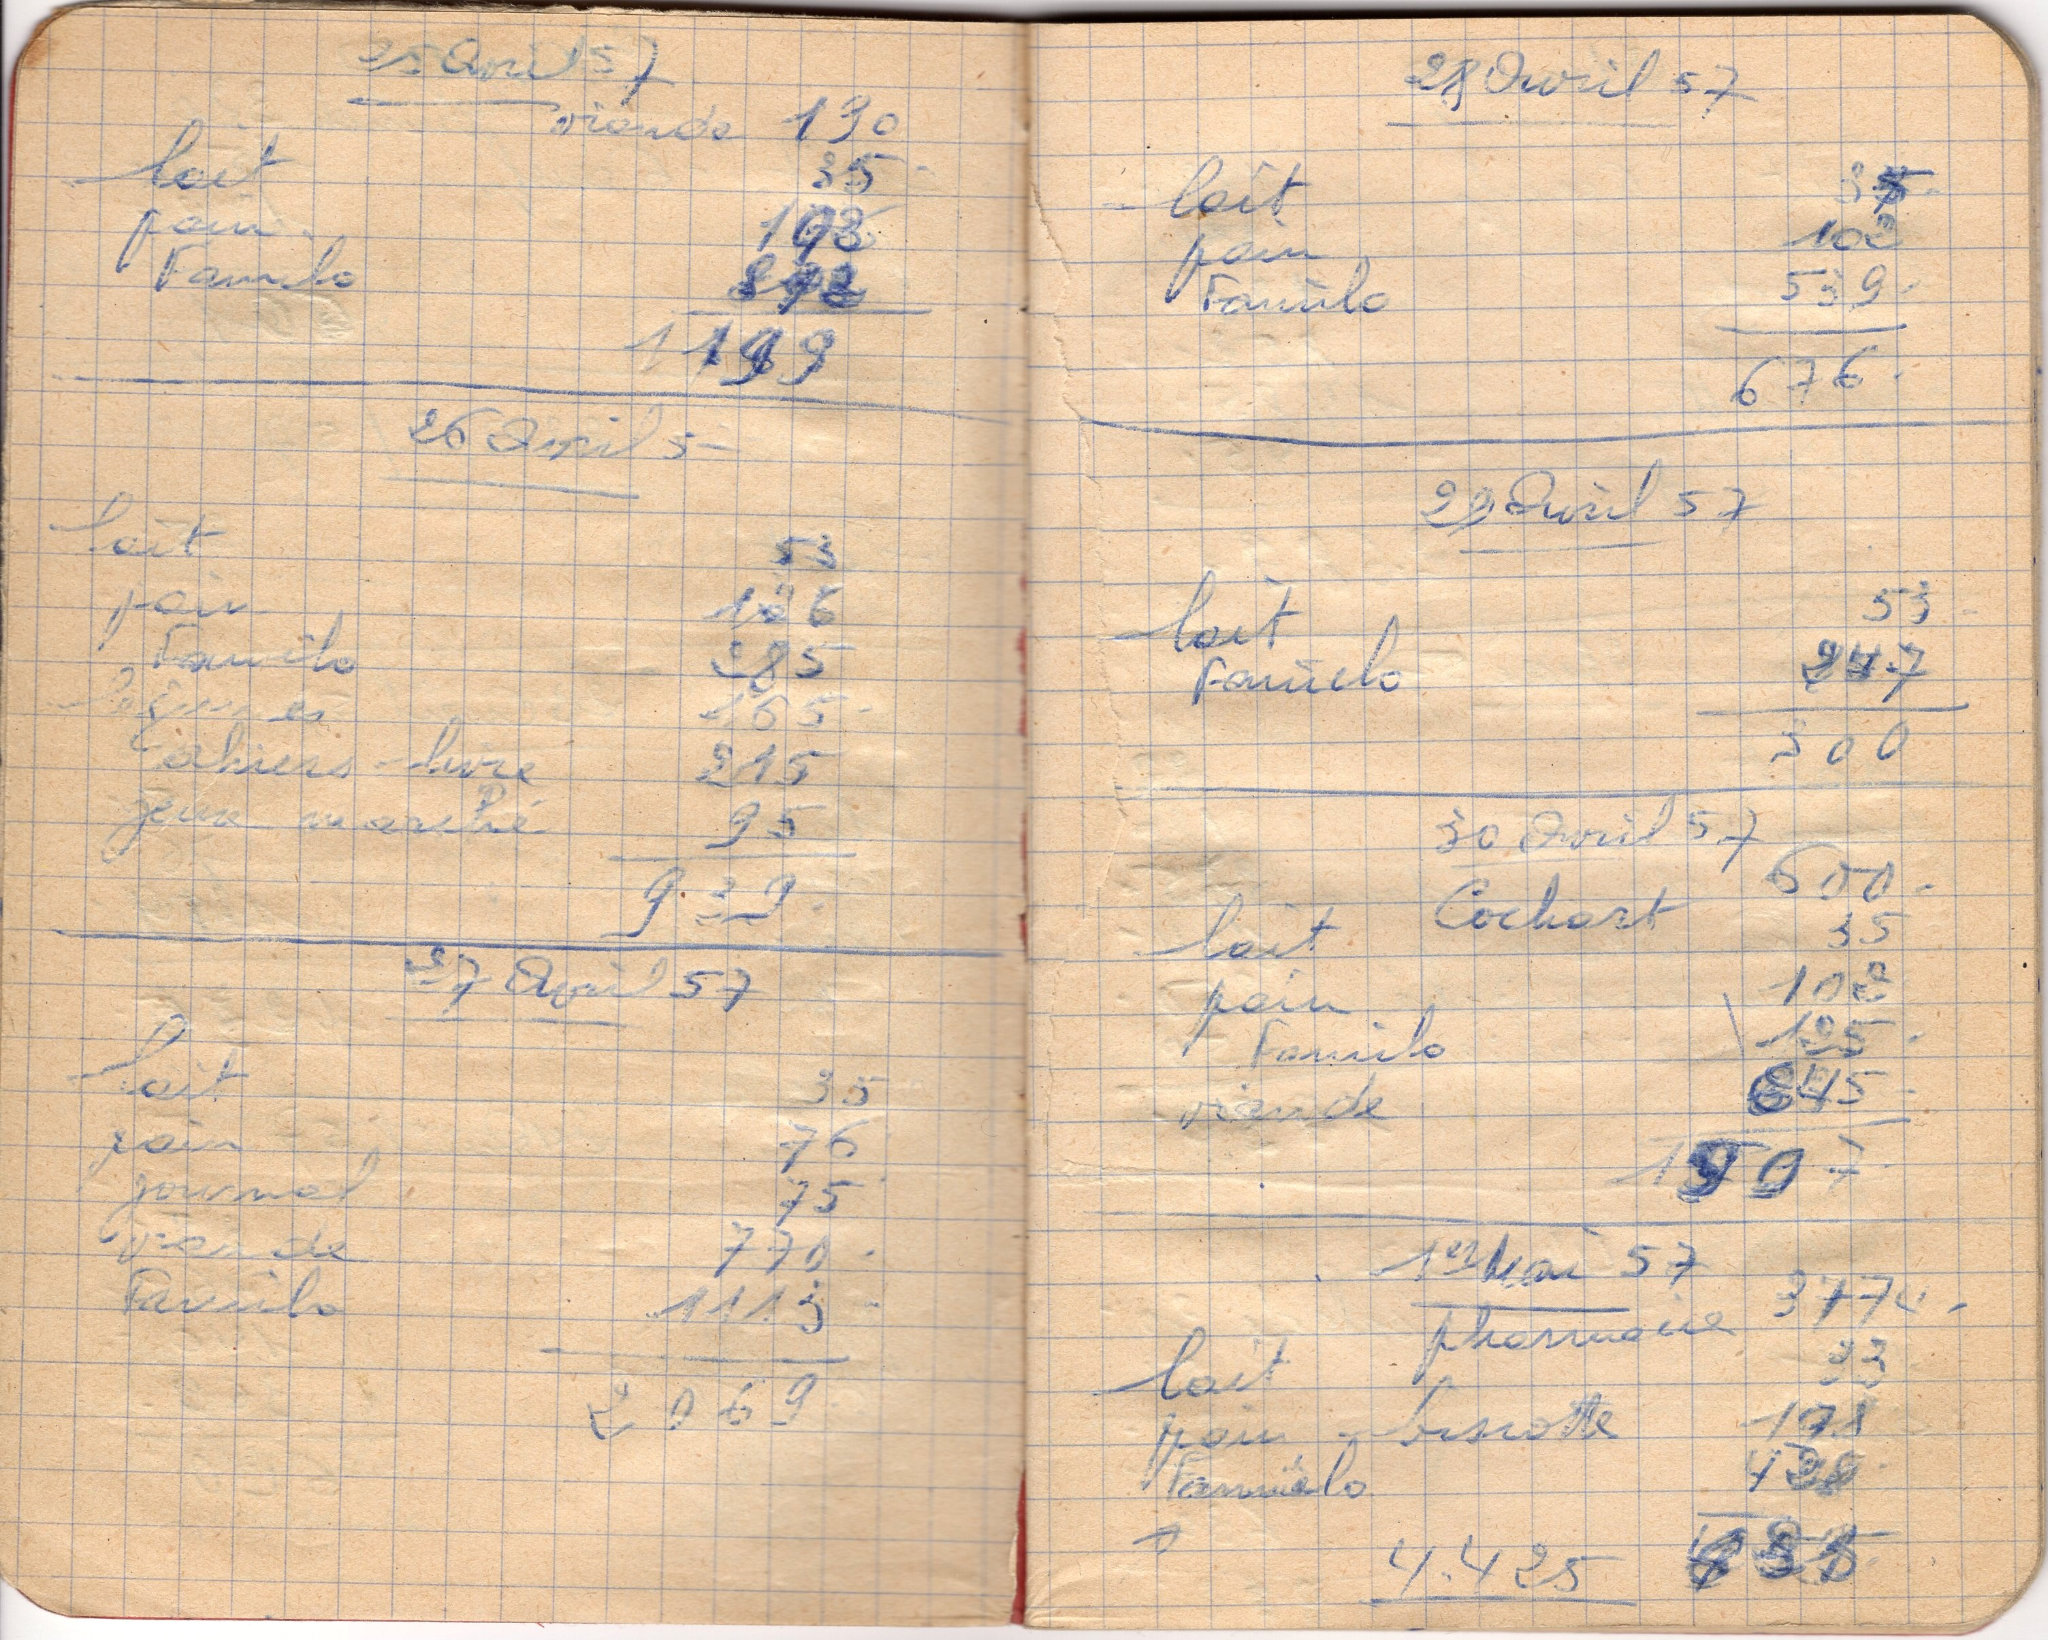 25 Avril 57
viande 130
lait 35
pain
Familo
1199
26 Avril 5
lait 53
pain 126
Familo 285
légumes 165
Cahiers livre 215
jeux marché 95
939
27 Avril 57
lait 35
pain 76
journal 75
viande 770
Familo 1113
2069
28 Avril 57
lait 35
pain 102
Familo 539
676
29 Avril 57
lait 53
Familo 247
300
30 Avril 57
Cochart 600
lait 35
pain 102
Familo 125
viande 645
1507
1er Mai 57
pharmacie
lait
pain biscotte
Familo
4.425